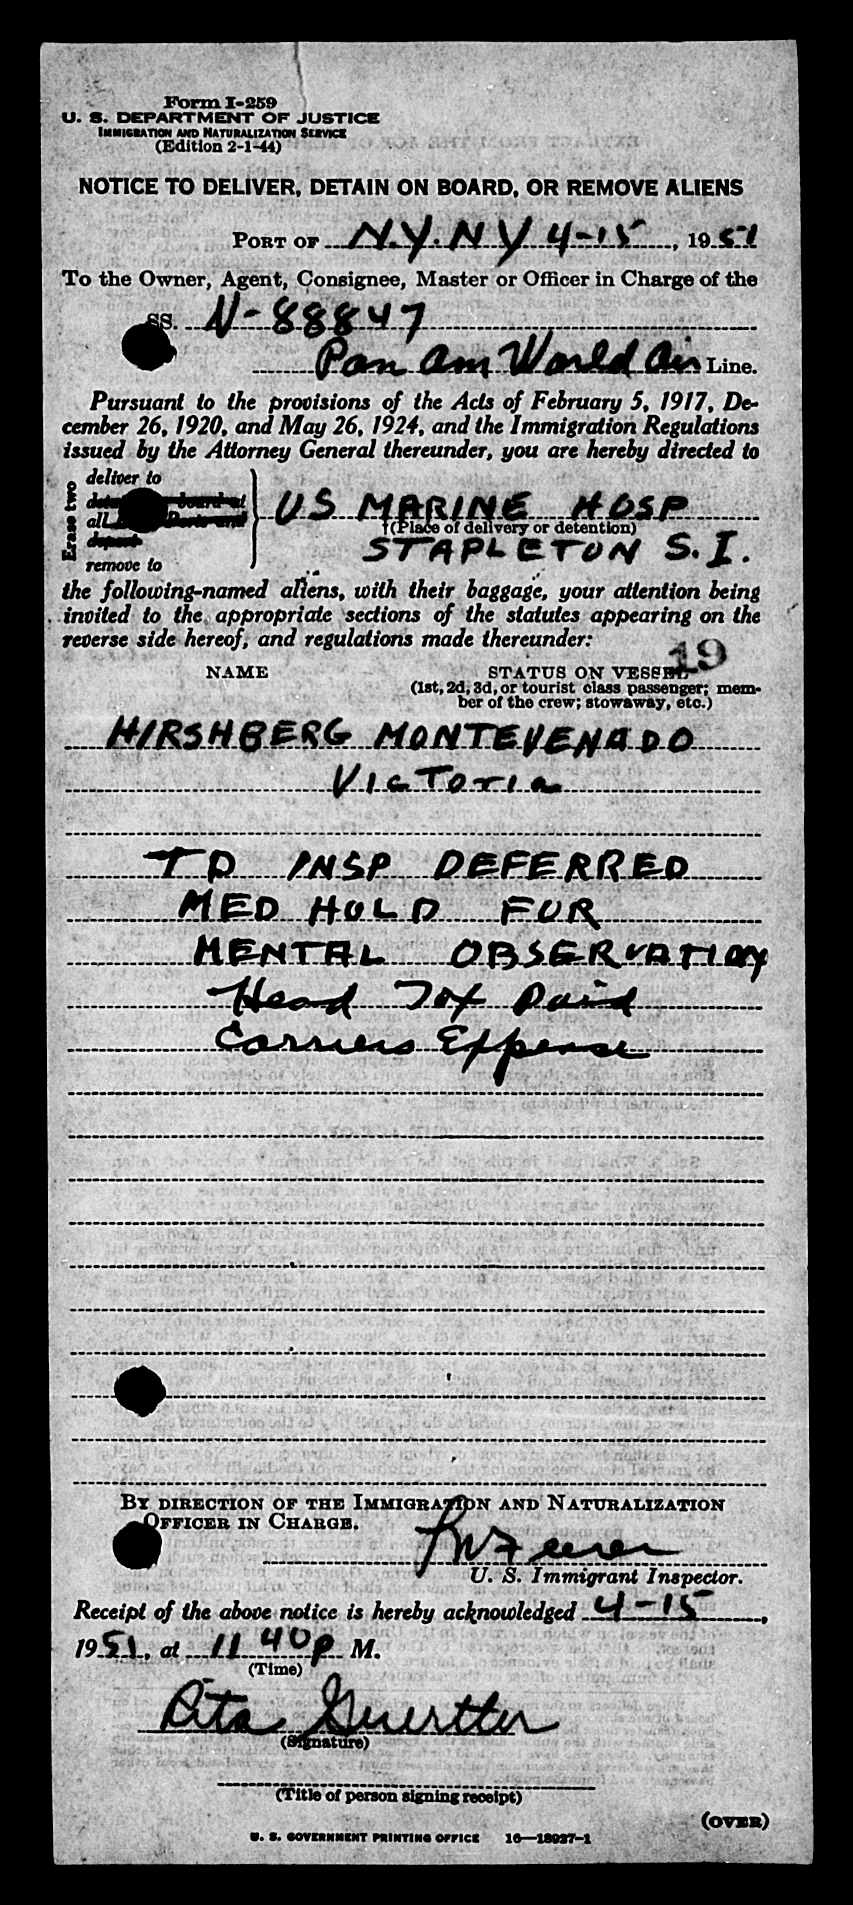 Form I-259
U. S. DEPARTMENT OF JUSTICE
IMMIGRATION AND NATURALIZATION SERVICE
(Edition 2-1-44)
NOTICE TO DELIVER, DETAIN ON BOARD, OR REMOVE ALIENS
PORT OF N.Y. N Y 4-15, 1951
To the Owner, Agent, Consignee, Master or Officer in Charge of the
SS. N-88847
Pan Am World Air Line.
Pursuant to the provisions of the Acts of February 5, 1917, De-
cember 26, 1920, and May 26, 1924, and the Immigration Regulations
issued by the Attorney General thereunder, you are hereby directed to
Erase two
deliver to
board at
all
remove to
US MARINE HOSP
(Place of delivery or detention)
STAPLETON S.I.
the following-named aliens, with their baggage, your attention being
invited to the appropriate sections of the statutes appearing on the
reverse side hereof, and regulations made thereunder:
19
NAME STATUS ON VESSEL
(1st, 2d, 3d, or tourist class passenger; mem-
ber of the crew; stowaway, etc.)
HIRSHBERG MONTEVENADO
VICTORIA
TD INSP DEFERRED
MED HOLD FOR
MENTAL OBSERVATION
Head Tax Paid
Carriers Expense
BY DIRECTION OF THE IMMIGRATION AND NATURALIZATION
OFFICER IN CHARGE.
U. S. Immigrant Inspector.
Receipt of the above notice is hereby acknowledged 4-15,
1951, at 11 40 P M.
(Time)
Rita
(Signature)
(Title of person signing receipt)
(OVER)
U. S. GOVERNMENT PRINTING OFFICE 16—18937-1